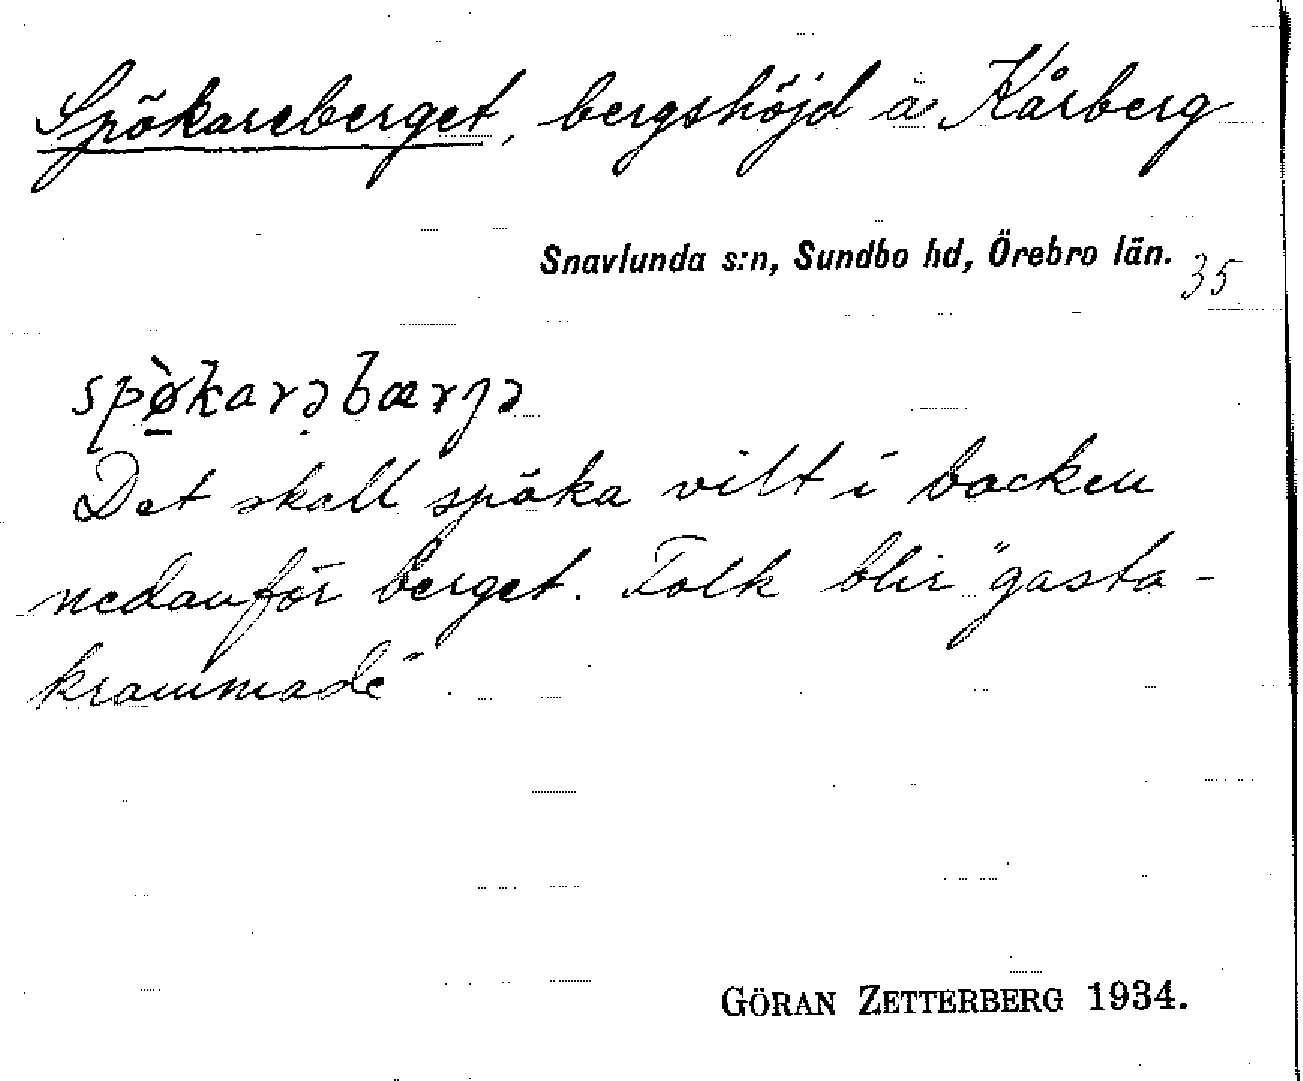 Spökareberget, bergshöjd å Kårberg
Snavlunda s:n, Sundbo hd, Örebro län.
35
spø̀karəbærjə
Det skall spöka vilt i backen
nedanför berget. Folk blir "gasta-
krammade"
GÖRAN ZETTERBERG 1934.